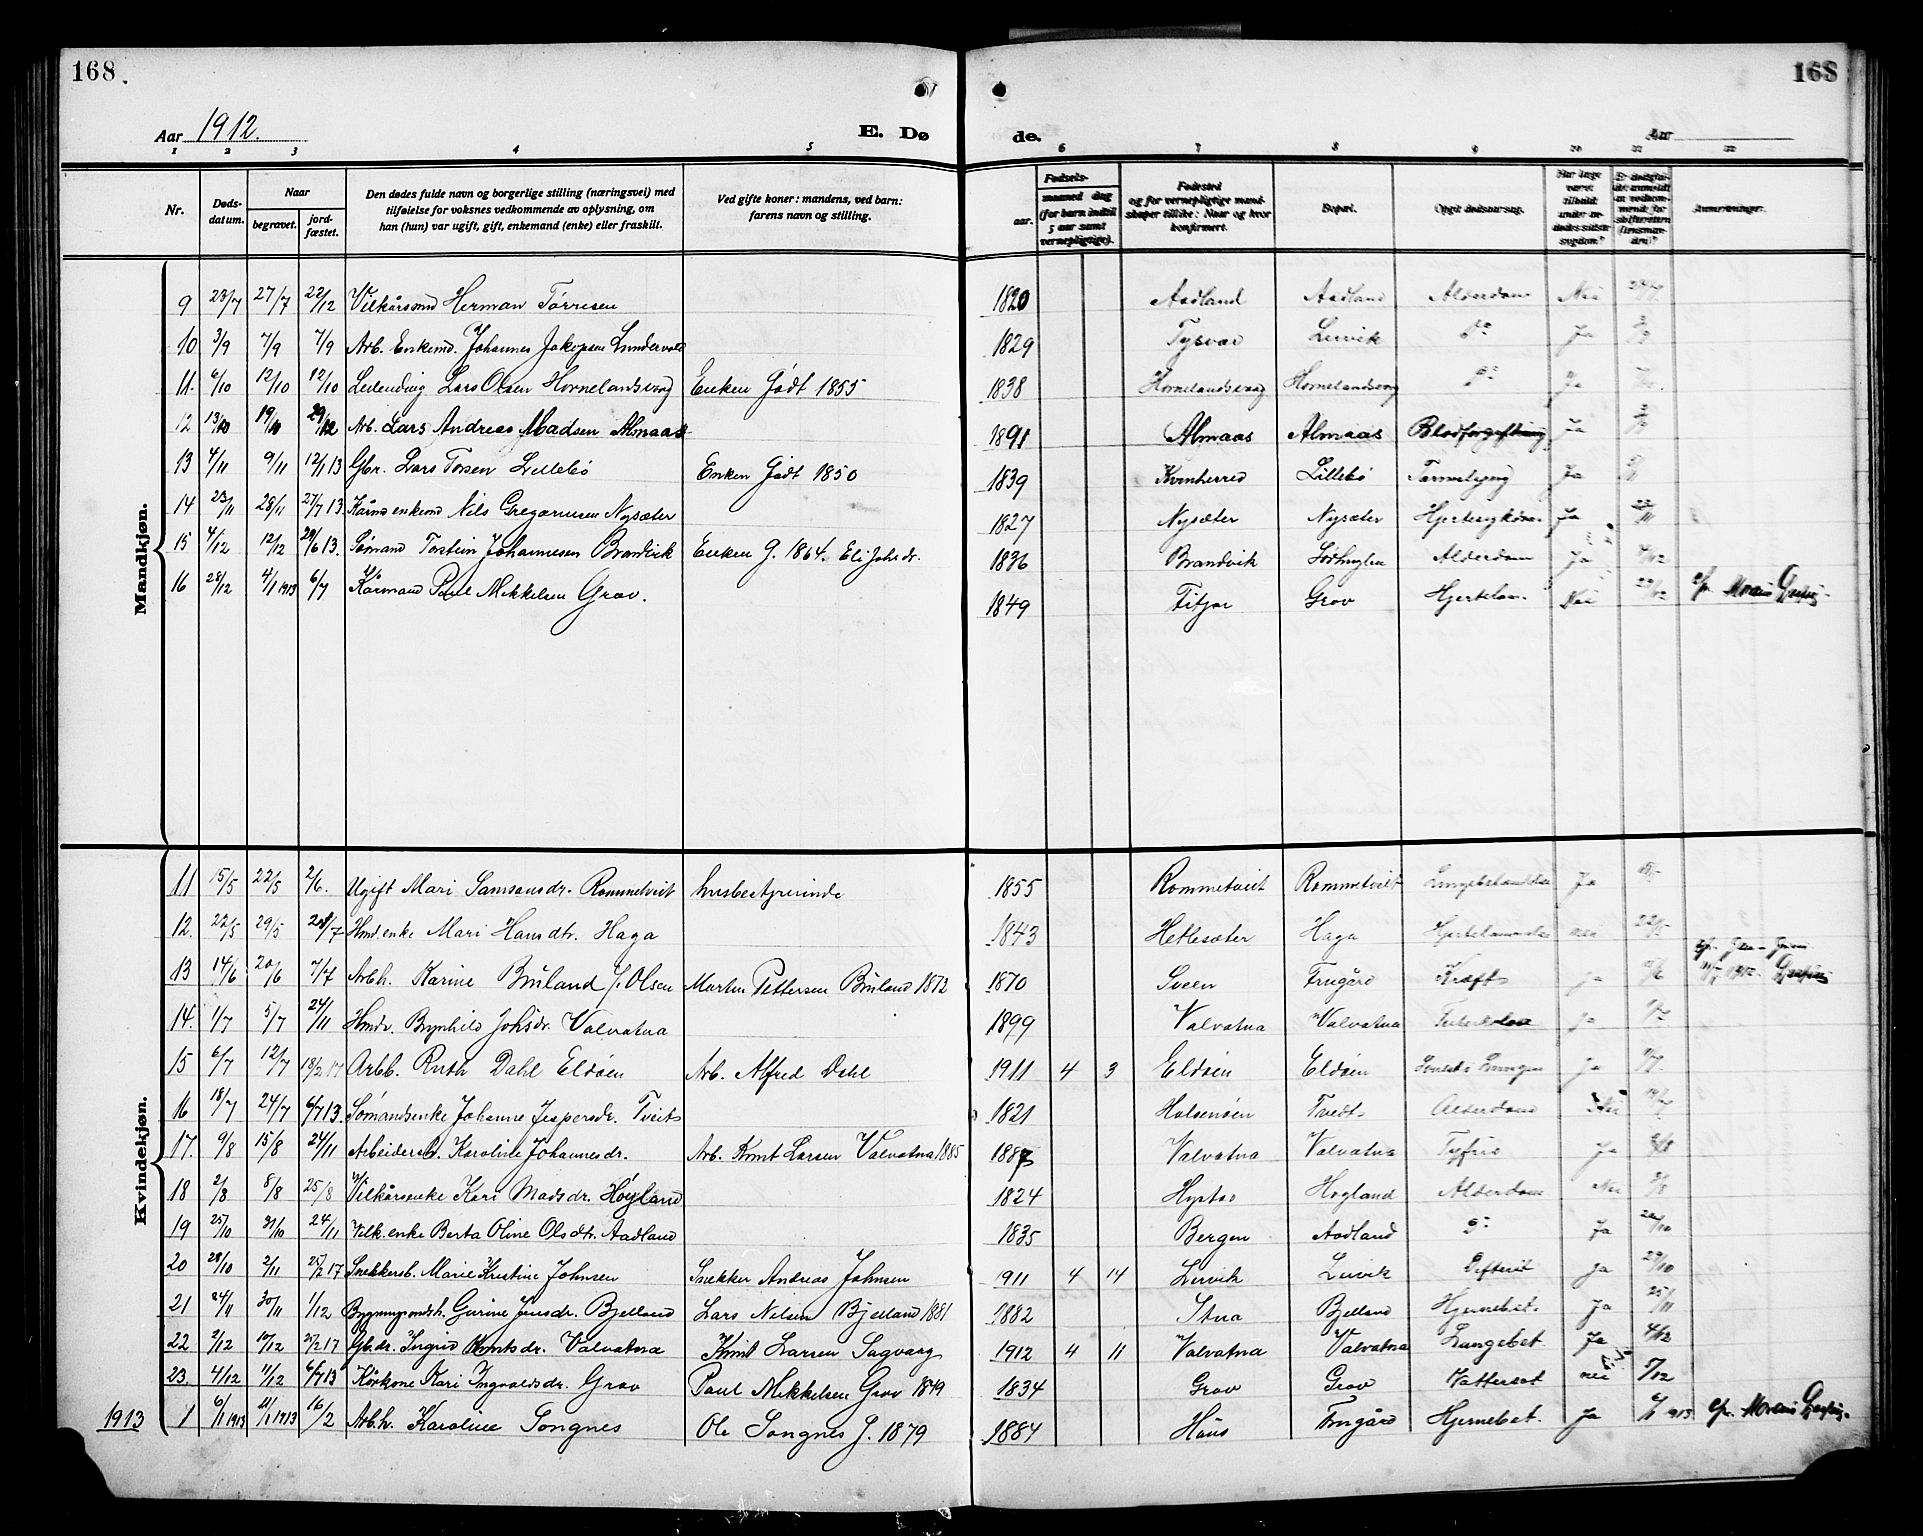 168.
168
Aar 1912.
E. Dø
de.
Aar
1 2 3 4 5 6 7 8 9 10 11 12
Nr.
Døds-
datum.
Naar
begravet.
jord-
fæstet.
Den dødes fulde navn og borgerlige stilling (næringsvei) med
tilføielse for voksnes vedkommende av oplysning, om
han (hun) var ugift, gift, enkemand (enke) eller fraskilt.
Ved gifte koner: mandens, ved barn:
farens navn og stilling.
Fødsels-
aar.
maaned dag
(for barn indtil
5 aar samt
vernepligtige).
Fødested
og for vernepligtige mand-
skaper tillike: Naar og hvor
konfirmert.
Bopæl.
Opgit dødsaarsag.
Har læge
været
tilkaldt
under av-
dødes sidste
sygdom?
Er dødsfal-
det anmeldt
av vedkom-
mende for
skifteretten
(lensman-
den)?
Anmerkninger.
Mandkjøn.
9 23/7 27/7 22/12 Vilkårsmd Herman Tørresen 1820 Aadland Aadland Alderdom Nei
10 3/9 7/9 7/9 Arb. Enkemd. Johannes Jakopsen Lundervold 1829 Tysvær Lervik Do Ja
11. 6/10 12/10 12/10 Leilending Lars Olsen Hornelandsvåg Enken Født 1855 1838 Hornelandsvåg Hornelandsvåg Do Ja
12 13/10 19/10 29/12 Arb. Lars Andreas Madsen Almaas 1891 Almaas Almaas Blodforgiftning Ja
13 4/11 9/11 12/1 13 Gbr. Lars Torsen Lillebø Enken Født 1850 1839 Kvinherred Lillebø Tarmslyng Ja
14 23/11 28/11 27/7 13. Kårmd enkemd Nils Gregoriusen Nysæter 1827 Nysæter Nysæter Hjertesykdom Ja
15 4/12 12/12 29/6 13. Sømand Torstein Johannesen Brandvik Enken G. 1864. Eli Johsdr. 1836 Brandvik Alderdom Ja 4/12
16 28/12 4/1 1913 6/7 Kårmand Paul Mikkelsen Grov. 1849 Fitjar Grov Nei 29/12
Kvindekjøn.
11 15/5 22/5 2/6. Ugift Mari Samsonsdr. Rommetveit husbestyrerinde 1855 Rommetveit Rommetveit Ja
12. 22/5 29/5 28/7 Hmd enke Mari Hansdtr. Haga 1843 Hetlesæter Haga nei 22/5
13 14/6 20/6 7/7 Arbh. Karine Buland f. Olsen Martin Pettersen Buland 1872 1870 Sveen Frugård Kræft Ja
14. 1/7 5/7 24/11 Hmdr. Brynhild Johsdr. Valvatna 1899 Valvatna Valvatna Tuberkulose Ja
15 6/7 12/7 18/2 17 Arbb. Ruth Dahl Eldøen Arb. Alfred Dahl 1911 4 3 Eldøen Eldøen Ja
16 18/7 24/7 6/7 13. Sømandsenke Johanne Jespersdr. Tveit 1821 Halsenøen Tvedt Alderdom Nei
17. 9/8 15/8 24/11 Karoline Johannesdr. Arb. Knut Larsen Valvatna 1885 1887 Valvatna Valvatna Tyfus Ja
18 2/8 8/8 25/8 Vilkårsenke Kari Madsdr. Høyland 1824 Høyland Alderdom Nei
19 25/10 31/10 24/11 Vilk. enke Berta Oline Olsdtr. Aadland 1835 Bergen Aadland Do Ja
20 28/10 2/11 25/2 17 Snekkerb. Marie Kristine Johnsen Snekker Andreas Johnsen 1911 4 14 Lervik Lervik Difterit Ja 29/10
21 24/11 30/11 1/12 Gurine Jensdr. Bjelland Lars Nilsen Bjelland 1881 1882 Stua Bjelland Hjernebet. Ja 25/11
22 2/12 17/12 25/2 17 Gb.dr. Ingrid Knutsdr. Valvatna Knut Larsen Sagvaag 1912 4 11 Valvatna Valvatna Lungebet. Ja 4/12
23. 4/12 11/12 6/7 13 Kårkone Kari Ingvaldsdr. Grov Paul Mikkelsen Grov 1849 1834 Grov Grov Vattersot nei 5/12
1913 1 6/1 1913 11/1 1913 16/2 Arb.h. Karoline Songnes Ole Songnes f. 1879 1884 Haus Frugård Hjernebet. Ja 6/1 1913.